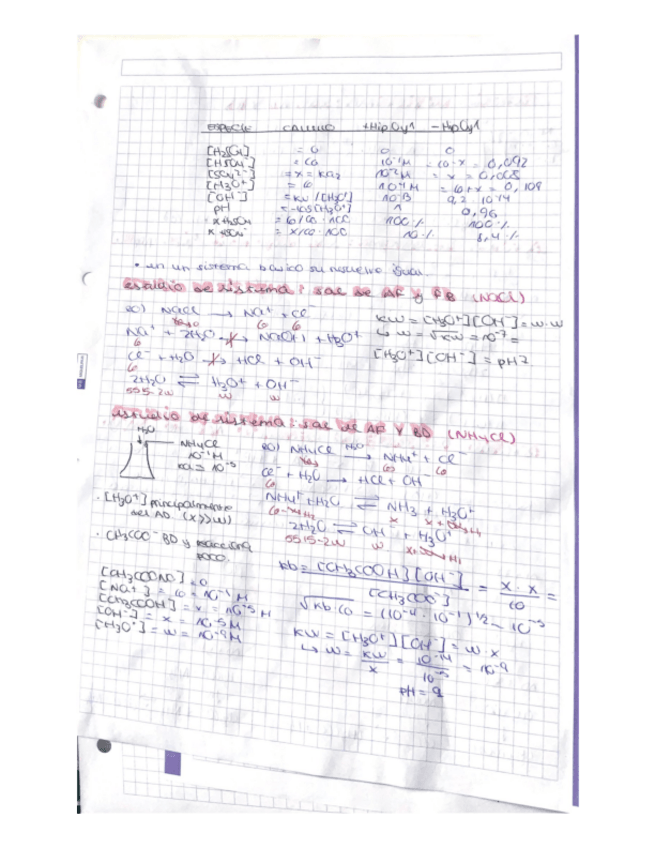 ESPECIE CALCULO +Hip Oy1 -Hip Oy1
[H2SO4] = 0 0 0
[HSO4-] = Co 10-1M = Co-x = 0,092
[SO4 2-] = x = Ka2 10-2M = x = 0,008
[H3O+] = Co 10-1M = Co+x = 0,108
[OH-] = Kw/[H3O+] 10-13 9,2 10-14
pH = -log[H3O+] 1 0,96
H2SO4 = Co/Co·100 100% 100%
HSO4- = x/Co·100 10% 8,4%
• en un sistema basico su
estudio de sistema: sal de AF y FB (NaCl)
ec) NaCl → Na+ + Cl-
Co Co
Kw = [H3O+][OH-] = w·w
Na+ + 2H2O ↛ NaOH + H3O+
Co
↳ w = √Kw = 10-7 =
Cl- + H2O ↛ HCl + OH-
Co
[H3O+][OH-] = pH 7
2H2O ⇌ H3O+ + OH-
55'5-2w w w
estudio de sistema: sal de AF y BD (NH4Cl)
H2O
NH4Cl
10-1M
Ka = 10-5
ec) NH4Cl H2O → NH4+ + Cl-
Co Co
Cl- + H2O → HCl + OH-
Co
NH4+ + H2O ⇌ NH3 + H3O+
x
2H2O ⇌ OH- + H3O+
55'5-2w w
· [H3O+] principalmente
del AD (x>>w)
· CH3COO- BD y reacciona
poco.
[CH3COONa] = 0
[Na+] = Co = 10-1 M
[CH3COOH] = x = 10-5 M
[OH-] = x = 10-5M
[H3O+] = w = 10-9M
Kb = [CH3COOH][OH-] / [CH3COO-] = x · x / Co =
√Kb·Co = (10-9 · 10-1)1/2 ~ 10-5
Kw = [H3O+][OH-] = w x
↳ w = Kw / x = 10-14 / 10-5 = 10-9
pH = 9